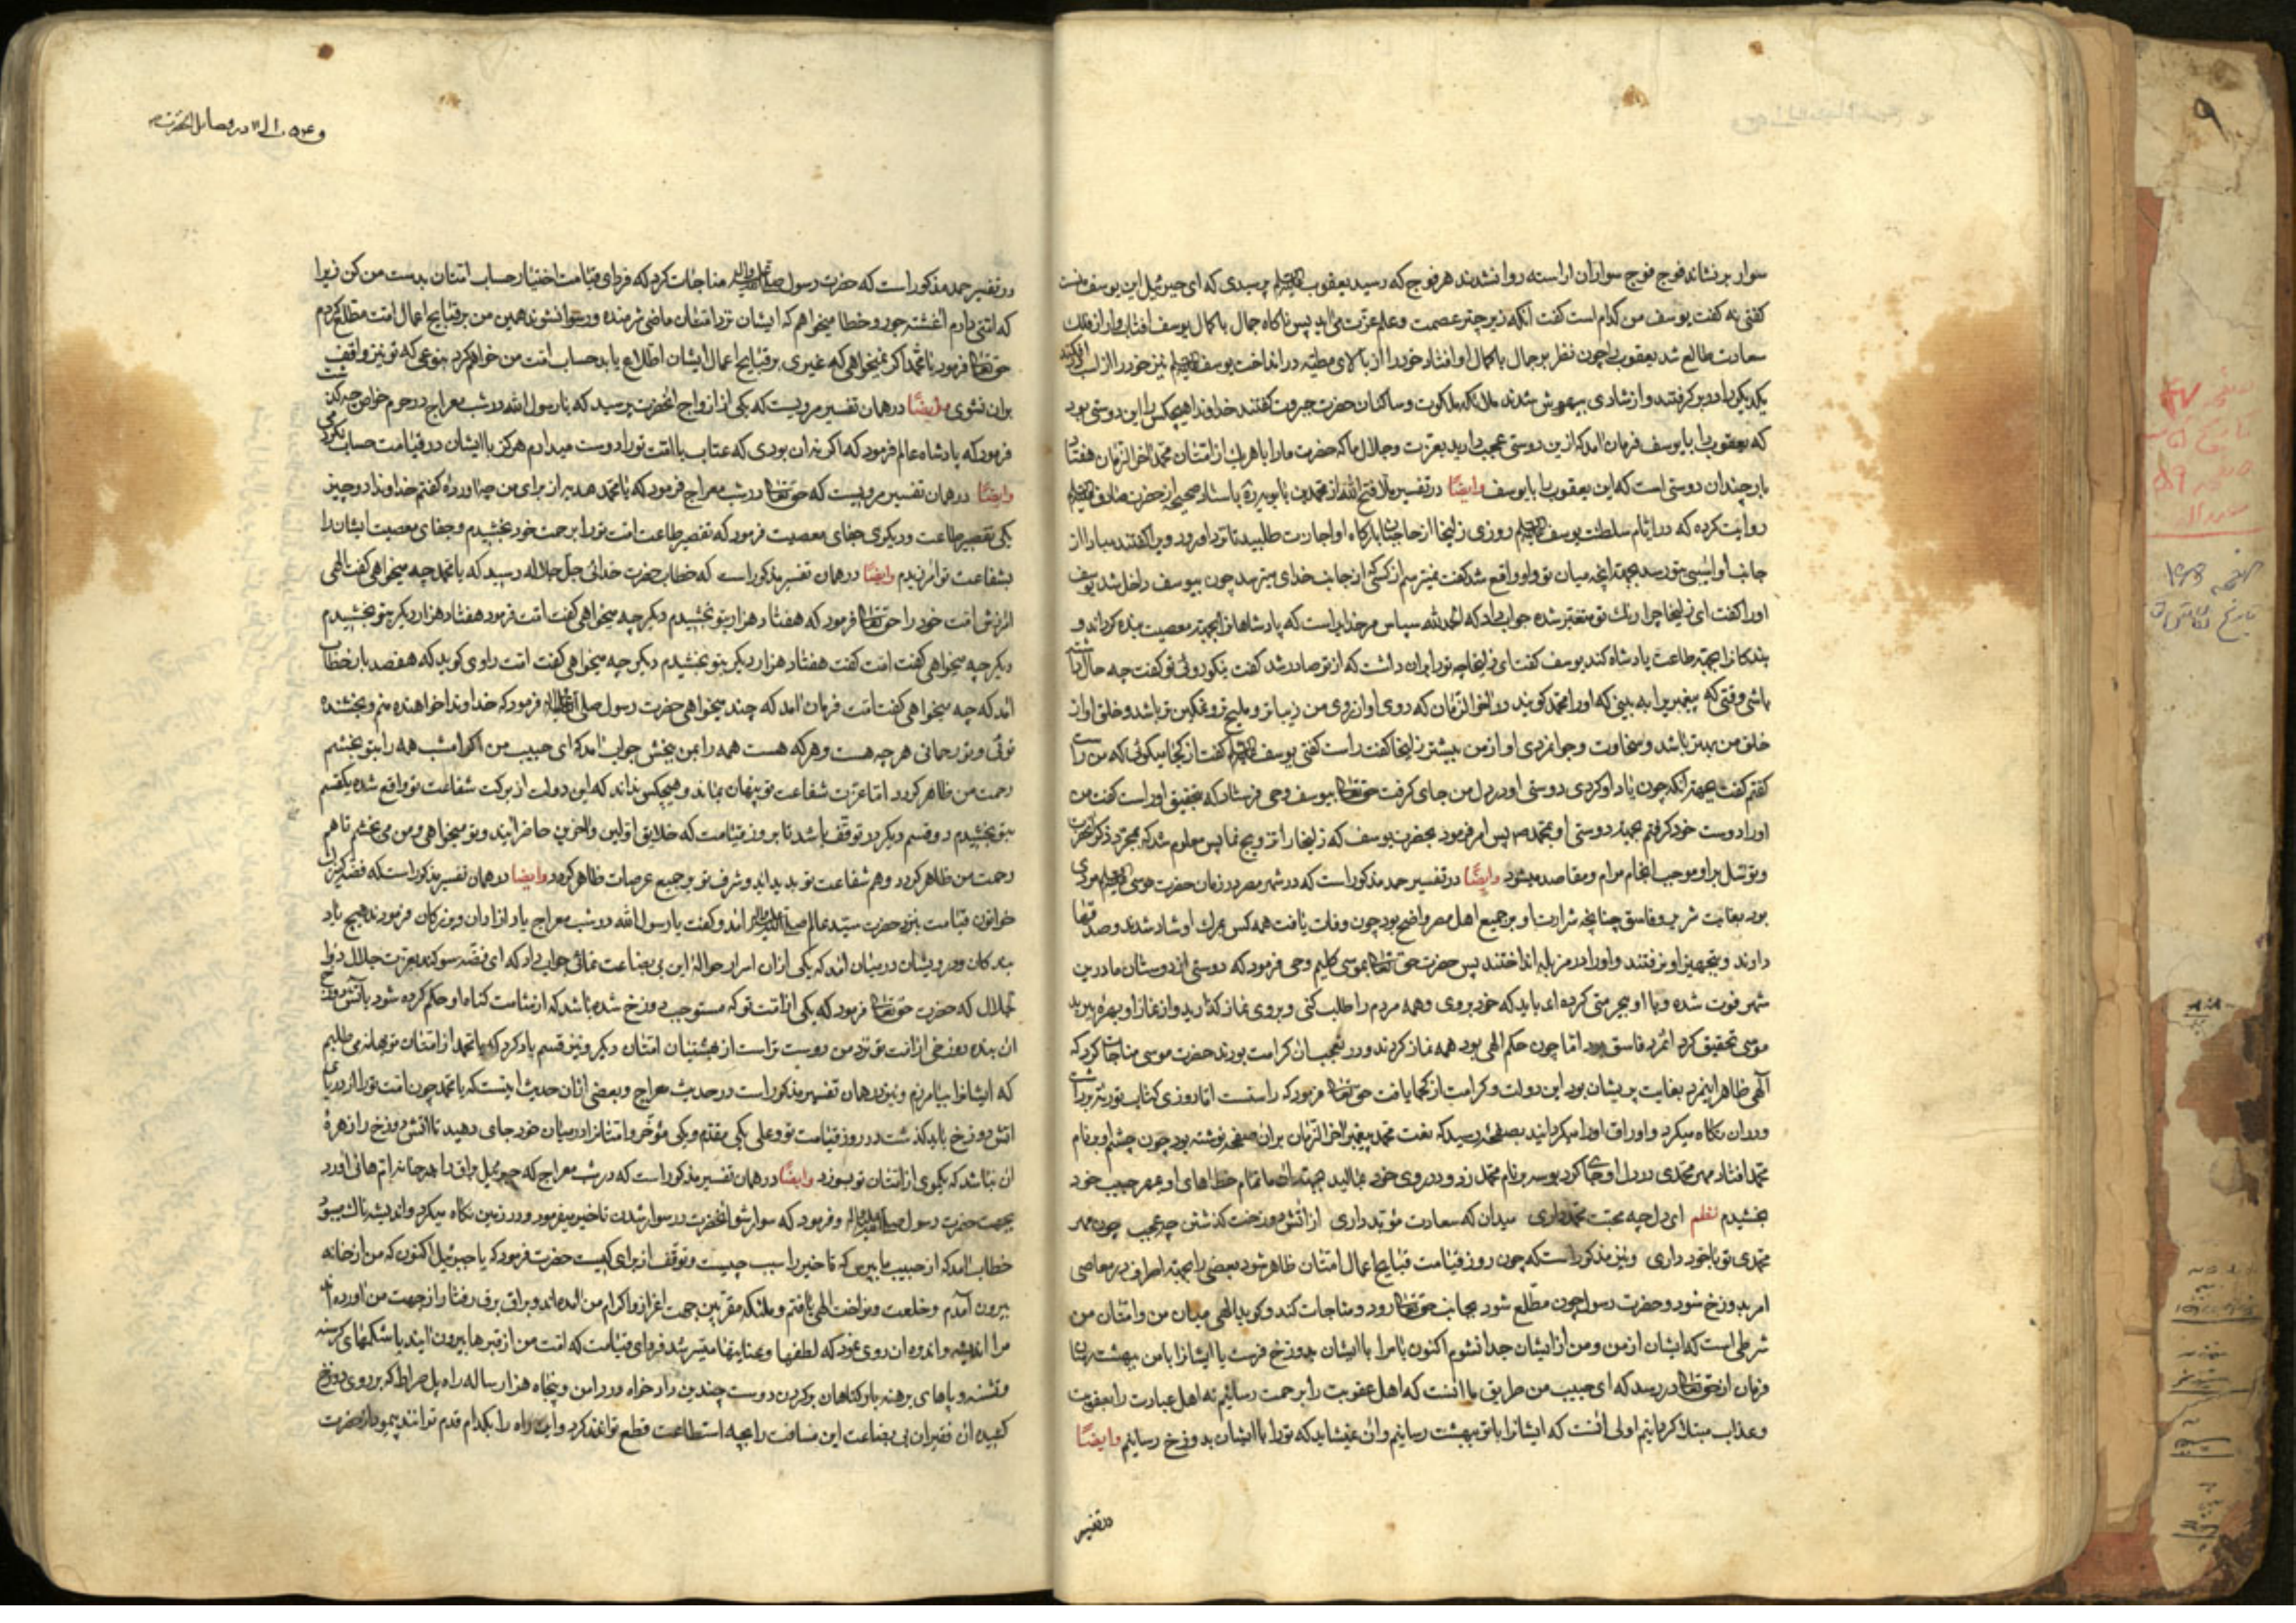 سوار برنشاند فوج فوج سواران اراسته روانشدند هر فوج که رسید یعقوب پرسیدی که ای جبرئیل این یوسف منست
کفتی نه کفت یوسف من کدام است کفت انکه زیر چتر عصمت و علم عزت می اید پس ناکاه جمال باکمال یوسف افتاب وار از فلک
سعادت طالع شد یعقوب را چون نظر بر جمال باکمال او افتاد خود را از بالای مطیّه در انداخت یوسف نیز خود را از اسب
یکدیکر را در بر کرفتند و از شادی بیهوش شدند ملائکه ملکوت و ساکنان حضرت جبروت کفتند خداوندا هیچکس را این دوستی بود
که یعقوب را با یوسف فرمان امد که ازین دوستی عجب دارید بعزت و جلال ما که حضرت ما را با هر یک از امتان محمد اخر الزمان هفتاد
بار چندان دوستی است که این یعقوب را با یوسف وایضًا در تفسیر ملا فتح الله از محمد بن بابویه باسناد صحیح از حضرت صادق
روایت کرده که در ایام سلطنت یوسف روزی زلیخا از حاجبان بارکاه او اجازت طلبید تا نزد او رود ویرا کفتند مبادا از
جانب او اسیبی بتو رسد بجهت انچه میان تو و او واقع شد کفت نمیترسم از کسی که از جانب خدای میترسد چون بیوسف داخل شد یوسف
اورا کفت ای زلیخا چرا رنک تو متغیر شده جواب داد که الحمد لله سپاس مر خدایراست که پادشاهانرا بجهت معصیت بنده کرداند و
بندکانرا بجهت طاعت پادشاه کند یوسف کفت ای زلیخا چه تو را بران داشت که از تو صادر شد کفت نیکو روئی تو کفت چه حال داشته
باشی وقتی که پیغمبریرا به بینی که اورا محمد کویند در اخر الزمان که روی او از روی من زیباتر و ملیح تر و نمکین تر باشد و خلق او از
خلق من بهتر باشد و سخاوت و جوانمردی او از من بیشتر زلیخا کفت راست کفتی یوسف کفت از کجا میکوئی که من راست
کفتم کفت بجهت انکه چون یاد او کردی دوستی او در دل من جای کرفت حق تعالی بیوسف وحی فرستاد که بتحقیق او راست کفت من
اورا دوست خود کرفتم بجهت دوستی او بمحمد ص پس امر فرمود بحضرت یوسف که زلیخا را تزویج نما پس معلوم شد که بمجرد ذکر انحضرت
و توسّل براو موجب انجام مرام و مقاصد میشود وایضًا در تفسیر حمد مذکور است که در شهر مصر در زمان حضرت موسی مردی
بود بغایت شریر و فاسق چنانچه شرارت او بر جمیع اهل مصر واضح بود چون وفات یافت همه کس بمرک او شاد شدند و صدقها
دادند و بتجهیز او نرفتند و اورا در مزبله انداختند پس حضرت حق تعالی بموسی کلیم وحی فرمود که دوستی از دوستان ما درین
شهر فوت شده و با او بیحرمتی کرده اند باید که خود بروی و همه مردم را طلب کنی و بروی نماز کذارید و از نماز او بهره برید
موسی تحقیق کرد انمرد فاسق بود اما چون حکم الهی بود همه نماز کردند و در تعجب ان کرامت بودند حضرت موسی مناجات کرد که
الهی ظاهر اینمرد بغایت پریشان بود این دولت و کرامت از کجا یافت حق تعالی فرمود که راستست اما روزی کتاب توریة برداشت
و دران نکاه میکرد و اوراق اورا میکردانید بصفحه رسید که نعت محمد پیغمبر اخر الزمان بران صفحه نوشته بود چون چشم او بر نام
محمد افتاد مهر محمدی در دل او جا کرد بوسه بر نام محمد زد و در روی خود مالید بجهت تمام خطاهای او بمهر حبیب خود
بخشیدم نظم ای دل چه محبت محمد داری میدان که سعادت مؤبد داری از اتش دوزخت کذشتن چه عجب چون مهر
محمدی تو با خود داری و نیز مذکور است که چون روز قیامت قبایح اعمال امتان ظاهر شود بعضی را بجهت اطراف در معاصی
امر بدوزخ شود و حضرت رسول چون مطّلع شود بجانب حق تعالی رود و مناجات کند و کوید الهی میان من و امتان من
شرطی است که ایشان از من و من از ایشان جدا نشوم اکنون یا مرا با ایشان بدوزخ فرست یا ایشانرا با من ببهشت رسان
فرمان از حق تعالی در رسد که ای حبیب من طریق ما انست که اهل عقوبت را برحمت رسانیم نه اهل عبادت را بعقوبت
و عذاب مبتلا کردانیم اولی انست که ایشانرا با تو ببهشت رسانیم و ان نمیشاید که تو را با ایشان بدوزخ رسانیم وایضًا
در تفسیر
در تفسیر حمد مذکور است که حضرت رسول صلی الله علیه واله مناجات کرد که فردای قیامت اختیار حساب امتان بدست من کن زیرا
که امتی دارم اغشته جور و خطا میخواهم که ایشان نزد امتان ماضی شرمنده و رسوا نشوند همین من بر قبایح اعمال امت مطلع کردم
حق تعالی فرمود یا محمد اکر نمیخواهی که غیری بر قبایح اعمال ایشان اطلاع یابد حساب امت من خواهم کرد بنوعی که تو نیز واقف
بران نشوی وایضًا در همان تفسیر مرویست که یکی از ازواج انحضرت پرسید که یا رسول الله در شب معراج در حرم خواص چه کذشت
فرمود که پادشاه عالم فرمود که اکر نه ان بودی که عتاب با امت تو را دوست میدارم هرکز با ایشان در قیامت حساب نکردمی
وایضًا در همان تفسیر مرویست که حق تعالی در شب معراج فرمود که یا محمد هدیه از برای من چه اورده کفتم خداوندا دو چیز
یکی تقصیر طاعت و دیکری جفای معصیت فرمود که تقصیر طاعت امت تو را برحمت خود بخشیدم و جفای معصیت ایشان را
بشفاعت تو امرزیدم وایضًا در همان تفسیر مذکور است که خطاب حضرت خدائی جل جلاله رسید که یا محمد چه میخواهی کفت الهی
امرزش امت خود را حق تعالی فرمود که هفتاد هزار بتو بخشیدم دیکر چه میخواهی کفت امت فرمود هفتاد هزار دیکر بتو بخشیدم
دیکر چه میخواهی کفت امت کفت هفتاد هزار دیکر بتو بخشیدم دیکر چه میخواهی کفت امت راوی کوید که هفصد بار خطاب
امد که چه میخواهی کفت امت فرمان امد که چند میخواهی حضرت رسول صلی الله علیه واله فرمود که خداوندا خواهنده منم و بخشنده
توئی و تو رحمانی هر چه هست و هر که هست همه را بمن ببخش جواب امد که ای حبیب من اکر امشب همه را بتو بخشم
رحمت من ظاهر کردد اما عزت شفاعت تو پنهان بماند و هیچکس نداند که این دولت از برکت شفاعت تو واقع شده یکقسم
بتو بخشیدم دو قسم دیکر در توقّف باشد تا بروز قیامت که خلایق اولین و اخرین حاضر ایند و تو میخواهی و من می بخشم تا هم
رحمت من ظاهر کردد و هم شفاعت تو بدید اید و شرف تو بر جمیع عرصات ظاهر کردد وایضا در همان تفسیر مذکور است که فضّه کنیز
خواتون قیامت بنزد حضرت سید عالم امد و کفت یا رسول الله در شب معراج یاد ازادان و بزرکان فرمودند هیچ یاد
بندکان و درویشان در میان امد که یکی ازان اسرار حوالهٔ این بی بضاعت نمائی جواب داد که ای فضّه سوکند بعزت جلال ذوا
لجلال که حضرت حق تعالی فرمود که یکی از امت تو که مستوجب دوزخ شده باشد که از شامت کناه او حکم کرده شود باتش دوزخ
ان بنده دوزخی از امت تو نزد من دوست تر است از بهشتیان امتان دیکر و نیز قسم یاد کرد که یا محمد از امتان تو بهانه می طلبم
که ایشانرا بیامرزم و نیز در همان تفسیر مذکور است در حدیث معراج و بعضی ازان حدیث اینست که یا محمد چون امت تو را از دریای
اتش دوزخ باید کذشت در روز قیامت تو و علی یکی مقدّم و یکی مؤخّر و امتانرا در میان خود جای دهید تا اتش دوزخ را زهرهٔ
ان نباشد که یکموی از امتان تو بسوزد وایضًا در همان تفسیر مذکور است که در شب معراج که جبرئیل براق را بدر خانه ام هانی اورد
بجهت حضرت رسول و فرمود که سوار شو انحضرت در سوار شدن تاخیر میفرمود و در زمین نکاه میکرد و اندیشه ناک میبود
خطاب امد که از حبیب ما بپرس که تاخیر را سبب چیست و توقّف از برای کیست حضرت فرمود که یا جبرئیل اکنون که من از خانه
بیرون آمدم و خلعت و نواخت الهی یافتم و ملئکه مقربین بجهت اعزاز و اکرام من امده اند و براق برق رفتار از جهت من اورده
مرا اندیشه و اندوه ان روی نمود که لطفها و عنایتها میسر شد فردای قیامت که امت من از قبرها بیرون ایند با شکمهای کرسنه
و تشنه و پاهای برهنه بار کناهان بر کردن دوست چندین داد خواه در دامن و پنجاه هزار ساله راه پل صراط که بر روی دوزخ
کشیده ان فقیران بی بضاعت این مسافت را بچه استطاعت قطع توانند کرد و این راه را بکدام قدم توانند پیمود از حضرت